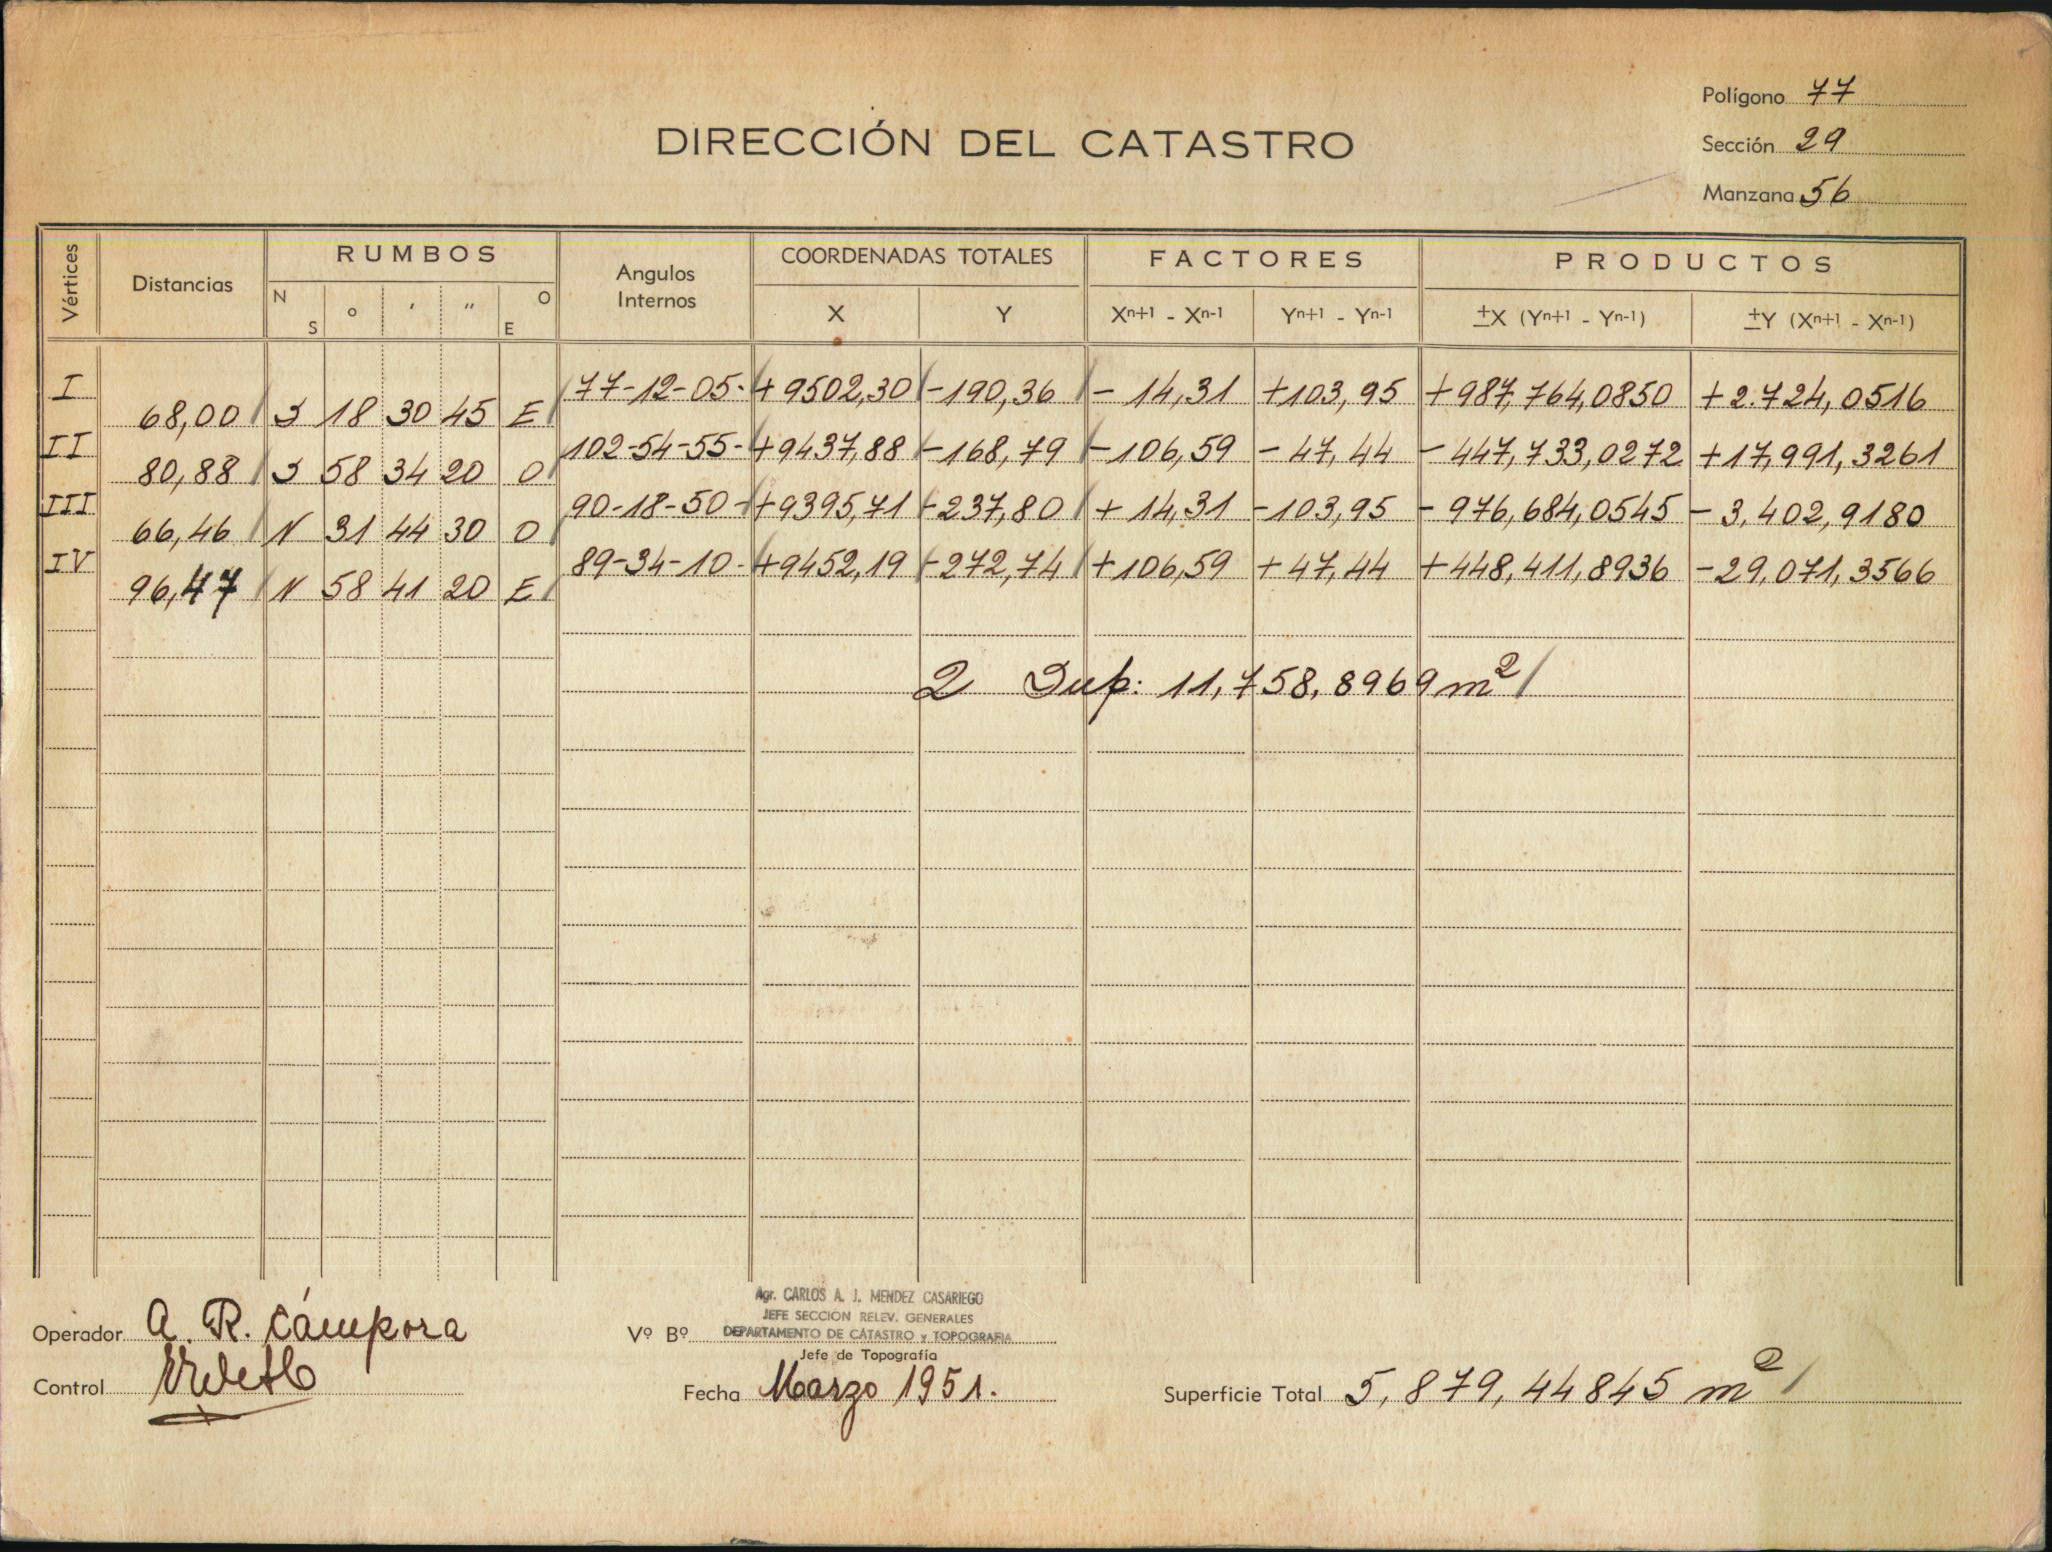 Polígono 77
DIRECCIÓN DEL CATASTRO
Sección 29
Manzana 56
Vértices Distancias RUMBOS Angulos Internos COORDENADAS TOTALES FACTORES PRODUCTOS
N S ° ' " O E X Y Xn+1 - Xn-1 Yn+1 - Yn-1 ±X (Yn+1 - Yn-1) ±Y (Xn+1 - Xn-1)
I 77-12-05- +9502,30 -190,36 - 14,31 +103,95 +987,764,0850 +2.724,0516
68,00 S 18 30 45 E
II 102-54-55- +9437,88 -168,79 -106,59 - 47,44 -447,733,0272 +17,991,3261
80,88 S 58 34 20 O
III 90-18-50- +9395,71 -237,80 + 14,31 -103,95 - 976,684,0545 - 3,402,9180
66,46 N 31 44 30 O
IV 89-34-10- +9452,19 -272,74 +106,59 + 47,44 +448,411,8936 -29,071,3566
96,47 N 58 41 20 E
2 Sup: 11,758,8969 m²
Agr. CARLOS A. J. MENDEZ CASARIEGO
JEFE SECCION RELEV. GENERALES
Operador A. R. Cámpora Vº Bº DEPARTAMENTO DE CATASTRO y TOPOGRAFIA
Jefe de Topografía
Control Fecha Marzo 1951. Superficie Total 5,879,44845 m²